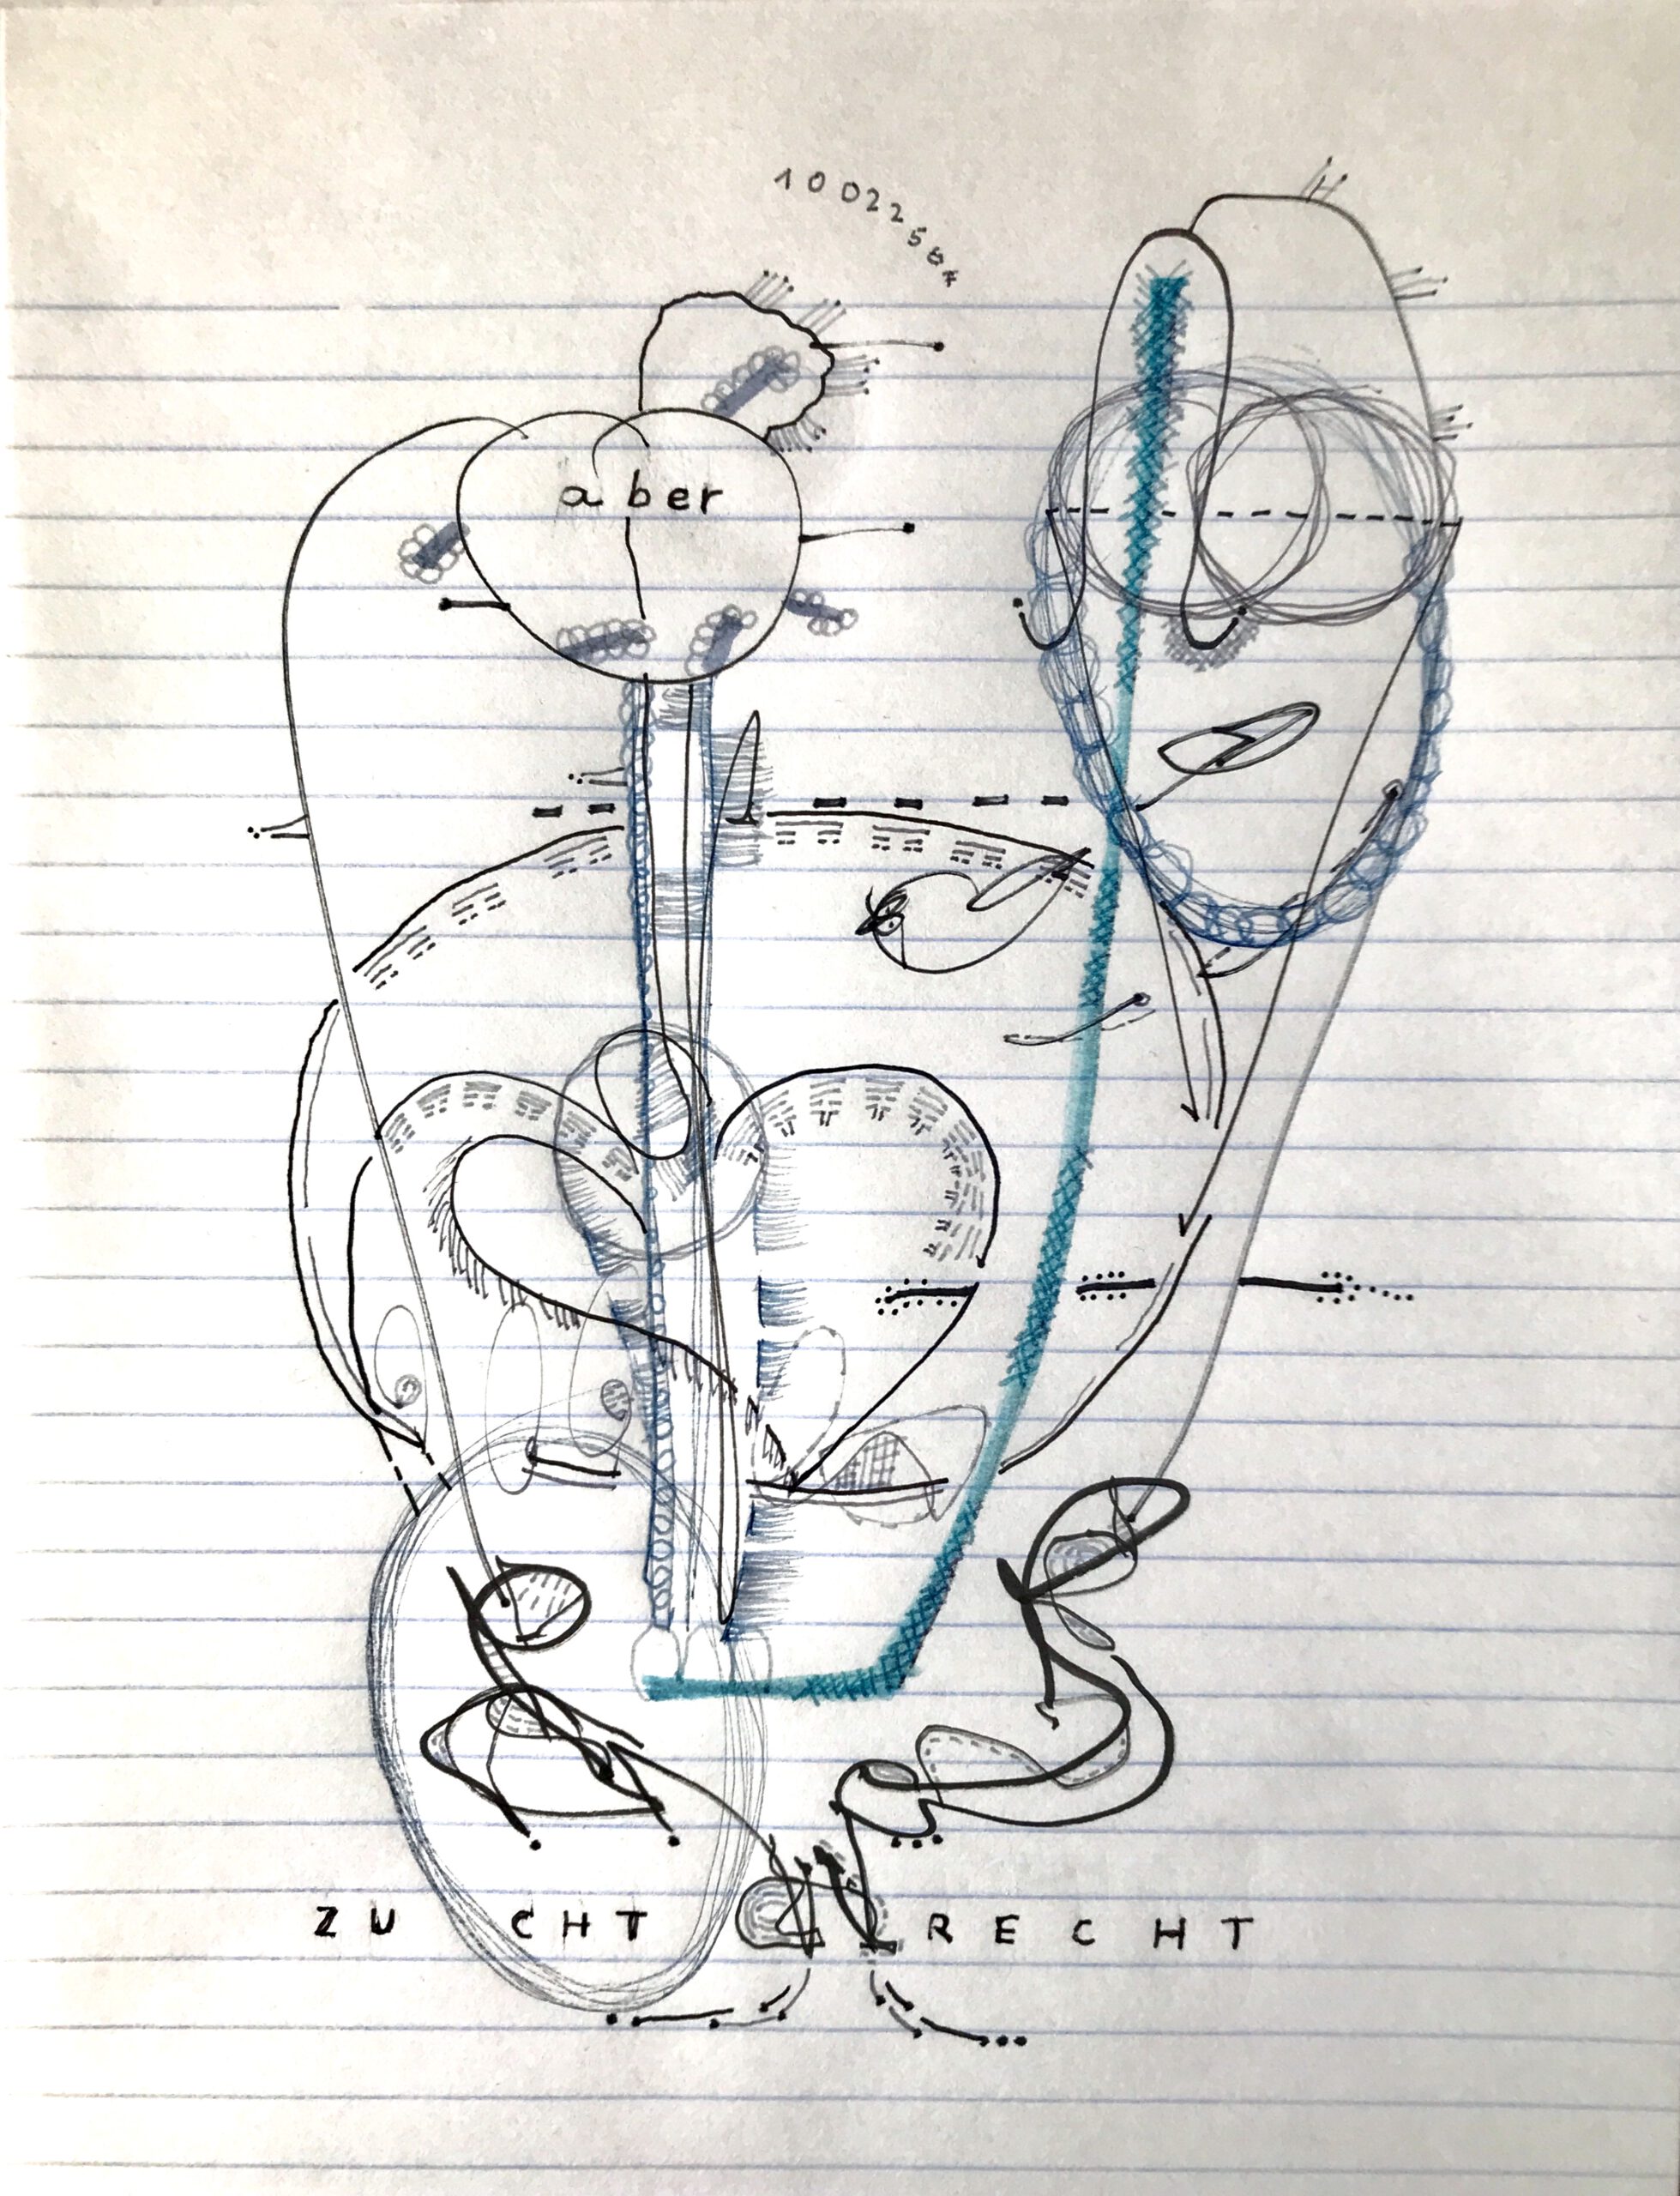 10022567
aber
ZU CHT RECHT